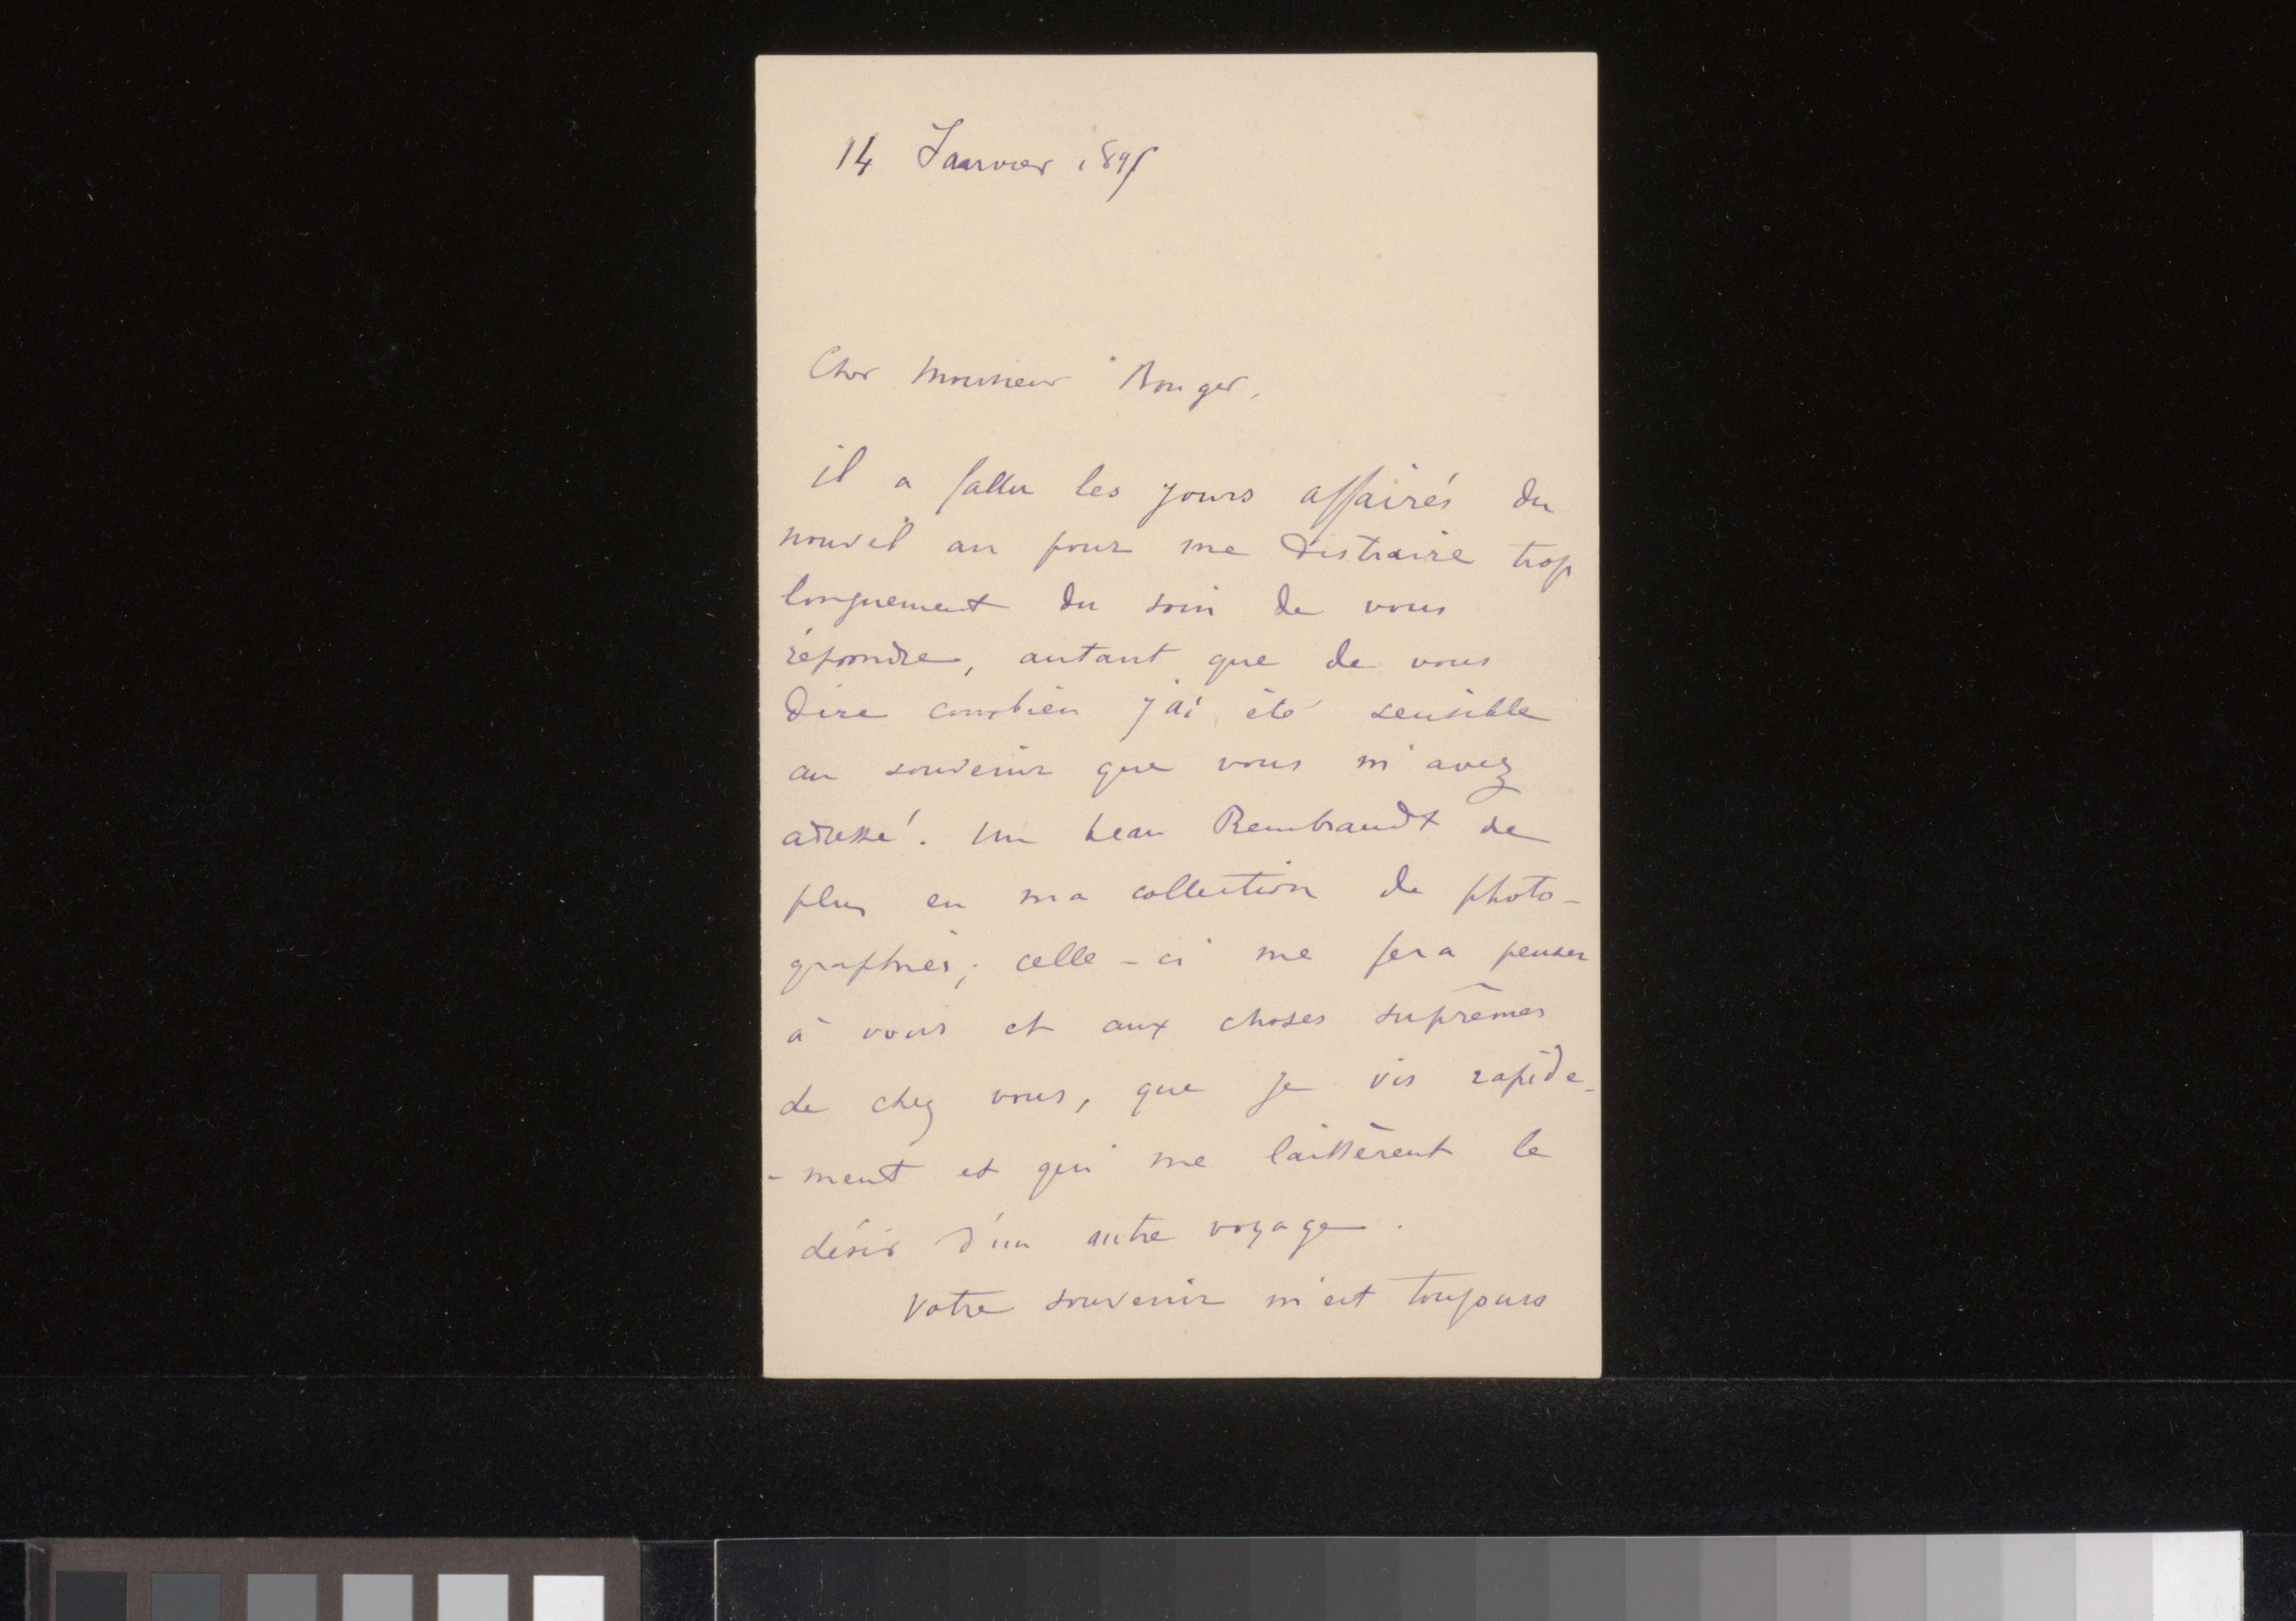 14 Janvier 189
Cher Monsieur Bonger,
il a fallu les jours affairés du
nouvel an pour me distraire trop
longuement du soin de vous
répondre, autant que de vous
dire combien j'ai été sensible
au souvenir que vous m'avez
adressé. Un beau Rembrandt de
plus en ma collection de photo-
graphies; celle-ci me fera penser
à vous et aux choses suprêmes
de chez vous, que je vis rapide-
-ment et qui me laissèrent le
désir d'un autre voyage.
Votre souvenir m'est toujours